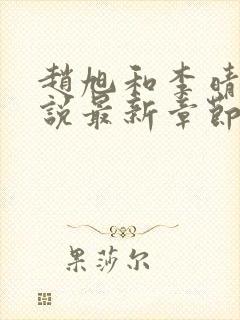 趙旭和李晴
說最新章節
果莎尔